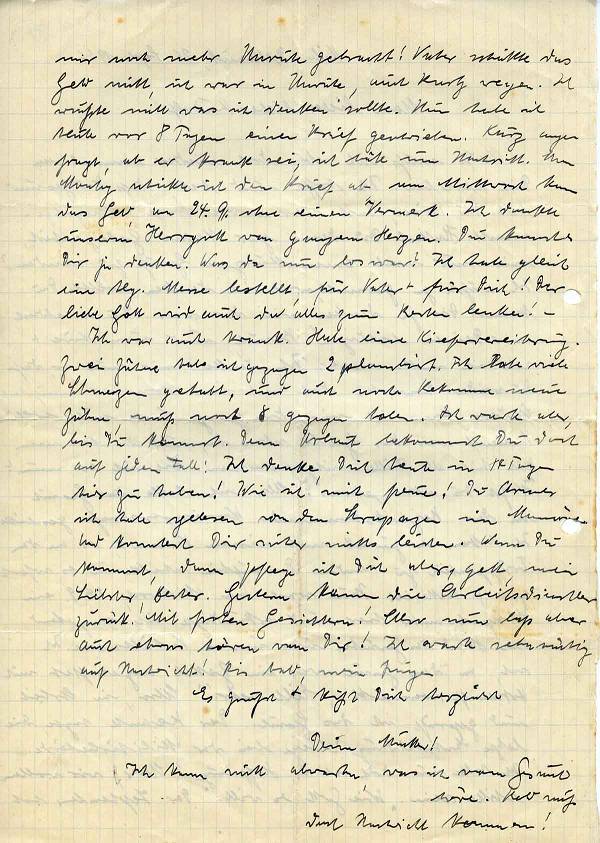 mir noch mehr Unruhe gebracht! Vater schickte das
Geld nicht, ich war in Unruhe, auch Kurtz wegen. Ich
wußte nicht was ich denken sollte. Nun habe ich
heute vor 8 Tagen einen Brief geschrieben. Kurz
fragt, ob er krank sei, ich um Nachricht. Am
Montag schickte ich den Brief ab am Mittwoch kam
das Geld, am 24. 9. ohne einen Vermerk. Ich dankte
unserm Herrgott von ganzem Herzen. Du kannst
Dir ja denken. Was da nun los war! Ich habe gleich
eine hlg. Messe bestellt, für Vater + für Dich! Der
liebe Gott wird auch da alles zum Besten lenken! –
Ich war auch krank. Habe eine Kiefervereiterung.
Zwei Zähne habe ich gezogen 2 plombiert. Ich habe viele
Schmerzen gehabt, und auch noch. Bekomme neue
Zähne, muß noch 8 gezogen haben. Ich warte aber,
bis Du kommst. Denn Urlaub bekommst Du doch
auf jeden Fall! Ich denke Dich heute in 14 Tagen
hier zu haben! Wie ich mich freue! Du Armer
ich habe gelesen von den Strapazen im Manöver
und konntest Dir sicher nichts leisten. Wenn Du
kommst, dann pflege ich Dich aber, gell, mein
Liebster, bester. Gestern kamen die Arbeitsdienstler
zurück! Mit frohen Gesichtern! Aber nun laß aber
auch etwas hören von Dir! Ich warte sehnsüchtig
auf Nachricht! Bis bald, mein Junge
Es grüßt + küßt Dich herzlichst
Deine Mutter!
Ich kann nicht abwarten, was ich vom
höre. Laß mich
doch Nachricht kommen!